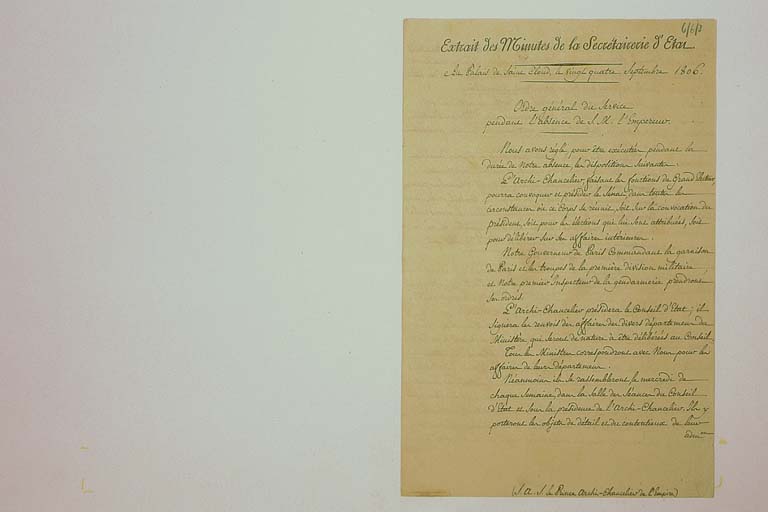 Extrait des Minutes de la Secrétairerie d'Etat
Au Palais de Saint Cloud, le vingt quatre Septembre 1806.
Ordre général du Service
pendant l'absence de S. M. l'Empereur.
Nous avons réglé pour être exécutées pendant la
durée de notre absence, les dispositions suivantes.
L'Archi-Chancelier, faisant les fonctions de Grand Electeur,
pourra convoquer et présider le Sénat, dans toutes les
circonstances où ce Corps se réunit, soit sur la convocation du
président, soit pour les élections qui lui sont attribuées, soit
pour délibérer sur ses affaires intérieures.
Notre Gouverneur de Paris Commandant la garnison
de Paris et les troupes de la première division militaire,
et notre premier Inspecteur de la gendarmerie prendront
ses ordres.
L'Archi-Chancelier présidera le Conseil d'Etat; il
signera les renvois des affaires des divers départemens du
Ministère qui seront de nature à être délibérées au Conseil.
Tous les Ministres correspondront avec Nous pour les
affaires de leur département.
Néanmoins ils se rassembleront le mercredi de
chaque semaine, dans la Salle des Séances du Conseil
d'Etat et sous la présidence de l'Archi-Chancelier. Ils y
porteront les objets de détail et du contentieux de leur
(S. A. S. le Prince Archi-Chancelier de l'Empire)